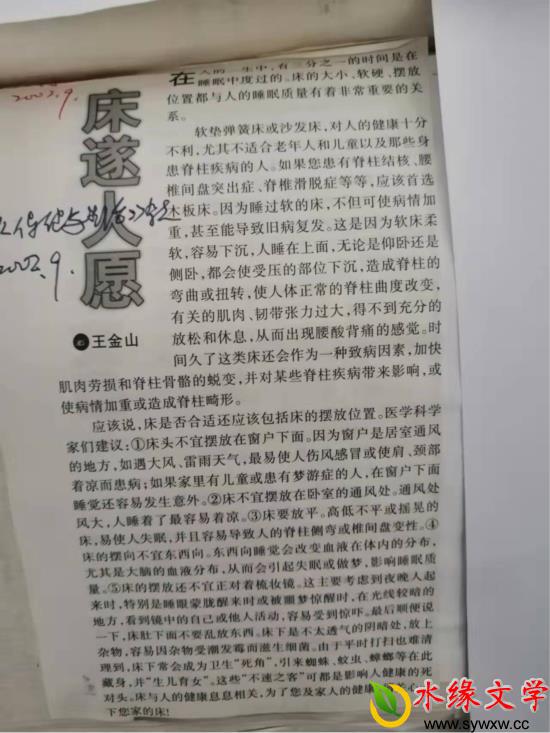 2002.9.
床遂人愿
2002.9.
王金山
在人的一生中,有三分之一的时间是在
睡眠中度过的。床的大小、软硬、摆放
位置都与人的睡眠质量有着非常重要的关
系。
软垫弹簧床或沙发床,对人的健康十分
不利,尤其不适合老年人和儿童以及那些身
患脊柱疾病的人。如果您患有脊柱结核、腰
椎间盘突出症、脊椎滑脱症等等,应该首选
木板床。因为睡过软的床,不但可使病情加
重,甚至能导致旧病复发。这是因为软床柔
软,容易下沉,人睡在上面,无论是仰卧还是
侧卧,都会使受压的部位下沉,造成脊柱的
弯曲或扭转,使人体正常的脊柱曲度改变,
有关的肌肉、韧带张力过大,得不到充分的
放松和休息,从而出现腰酸背痛的感觉。时
间久了这类床还会作为一种致病因素,加快
肌肉劳损和脊柱骨骼的蜕变,并对某些脊柱疾病带来影响,或
使病情加重或造成脊柱畸形。
应该说,床是否合适还应该包括床的摆放位置。医学科学
家们建议:①床头不宜摆放在窗户下面。因为窗户是居室通风
的地方,如遇大风、雷雨天气,最易使人伤风感冒或使肩、颈部
着凉而患病;如果家里有儿童或患有梦游症的人,在窗户下面
睡觉还容易发生意外。②床不宜摆放在卧室的通风处。通风处
风大,人睡着了最容易着凉。③床要放平。高低不平或摇晃的
床,易使人失眠,并且容易导致人的脊柱侧弯或椎间盘变性。④
床的摆向不宜东西向。东西向睡觉会改变血液在体内的分布,
尤其是大脑的血液分布,从而会引起失眠或做梦,影响睡眠质
量。⑤床的摆放还不宜正对着梳妆镜。这主要考虑到夜晚人起
来时,特别是睡眼蒙胧醒来时或被噩梦惊醒时,在光线较暗的
地方,看到镜中的自己或他人活动,容易受到惊吓。最后顺便说
一下,床肚下面不要乱放东西。床下是不太透气的阴暗处,放上
杂物,容易因杂物受潮发霉而滋生细菌。由于平时打扫也难清
理到,床下常会成为卫生“死角”,引来蜘蛛、蚊虫、蟑螂等在此
藏身,并“生儿育女”。这些“不速之客”可都是影响人健康的死
对头。床与人的健康息息相关,为了您及家人的健康
下您家的床!
水缘文学
www.sywxw.cc